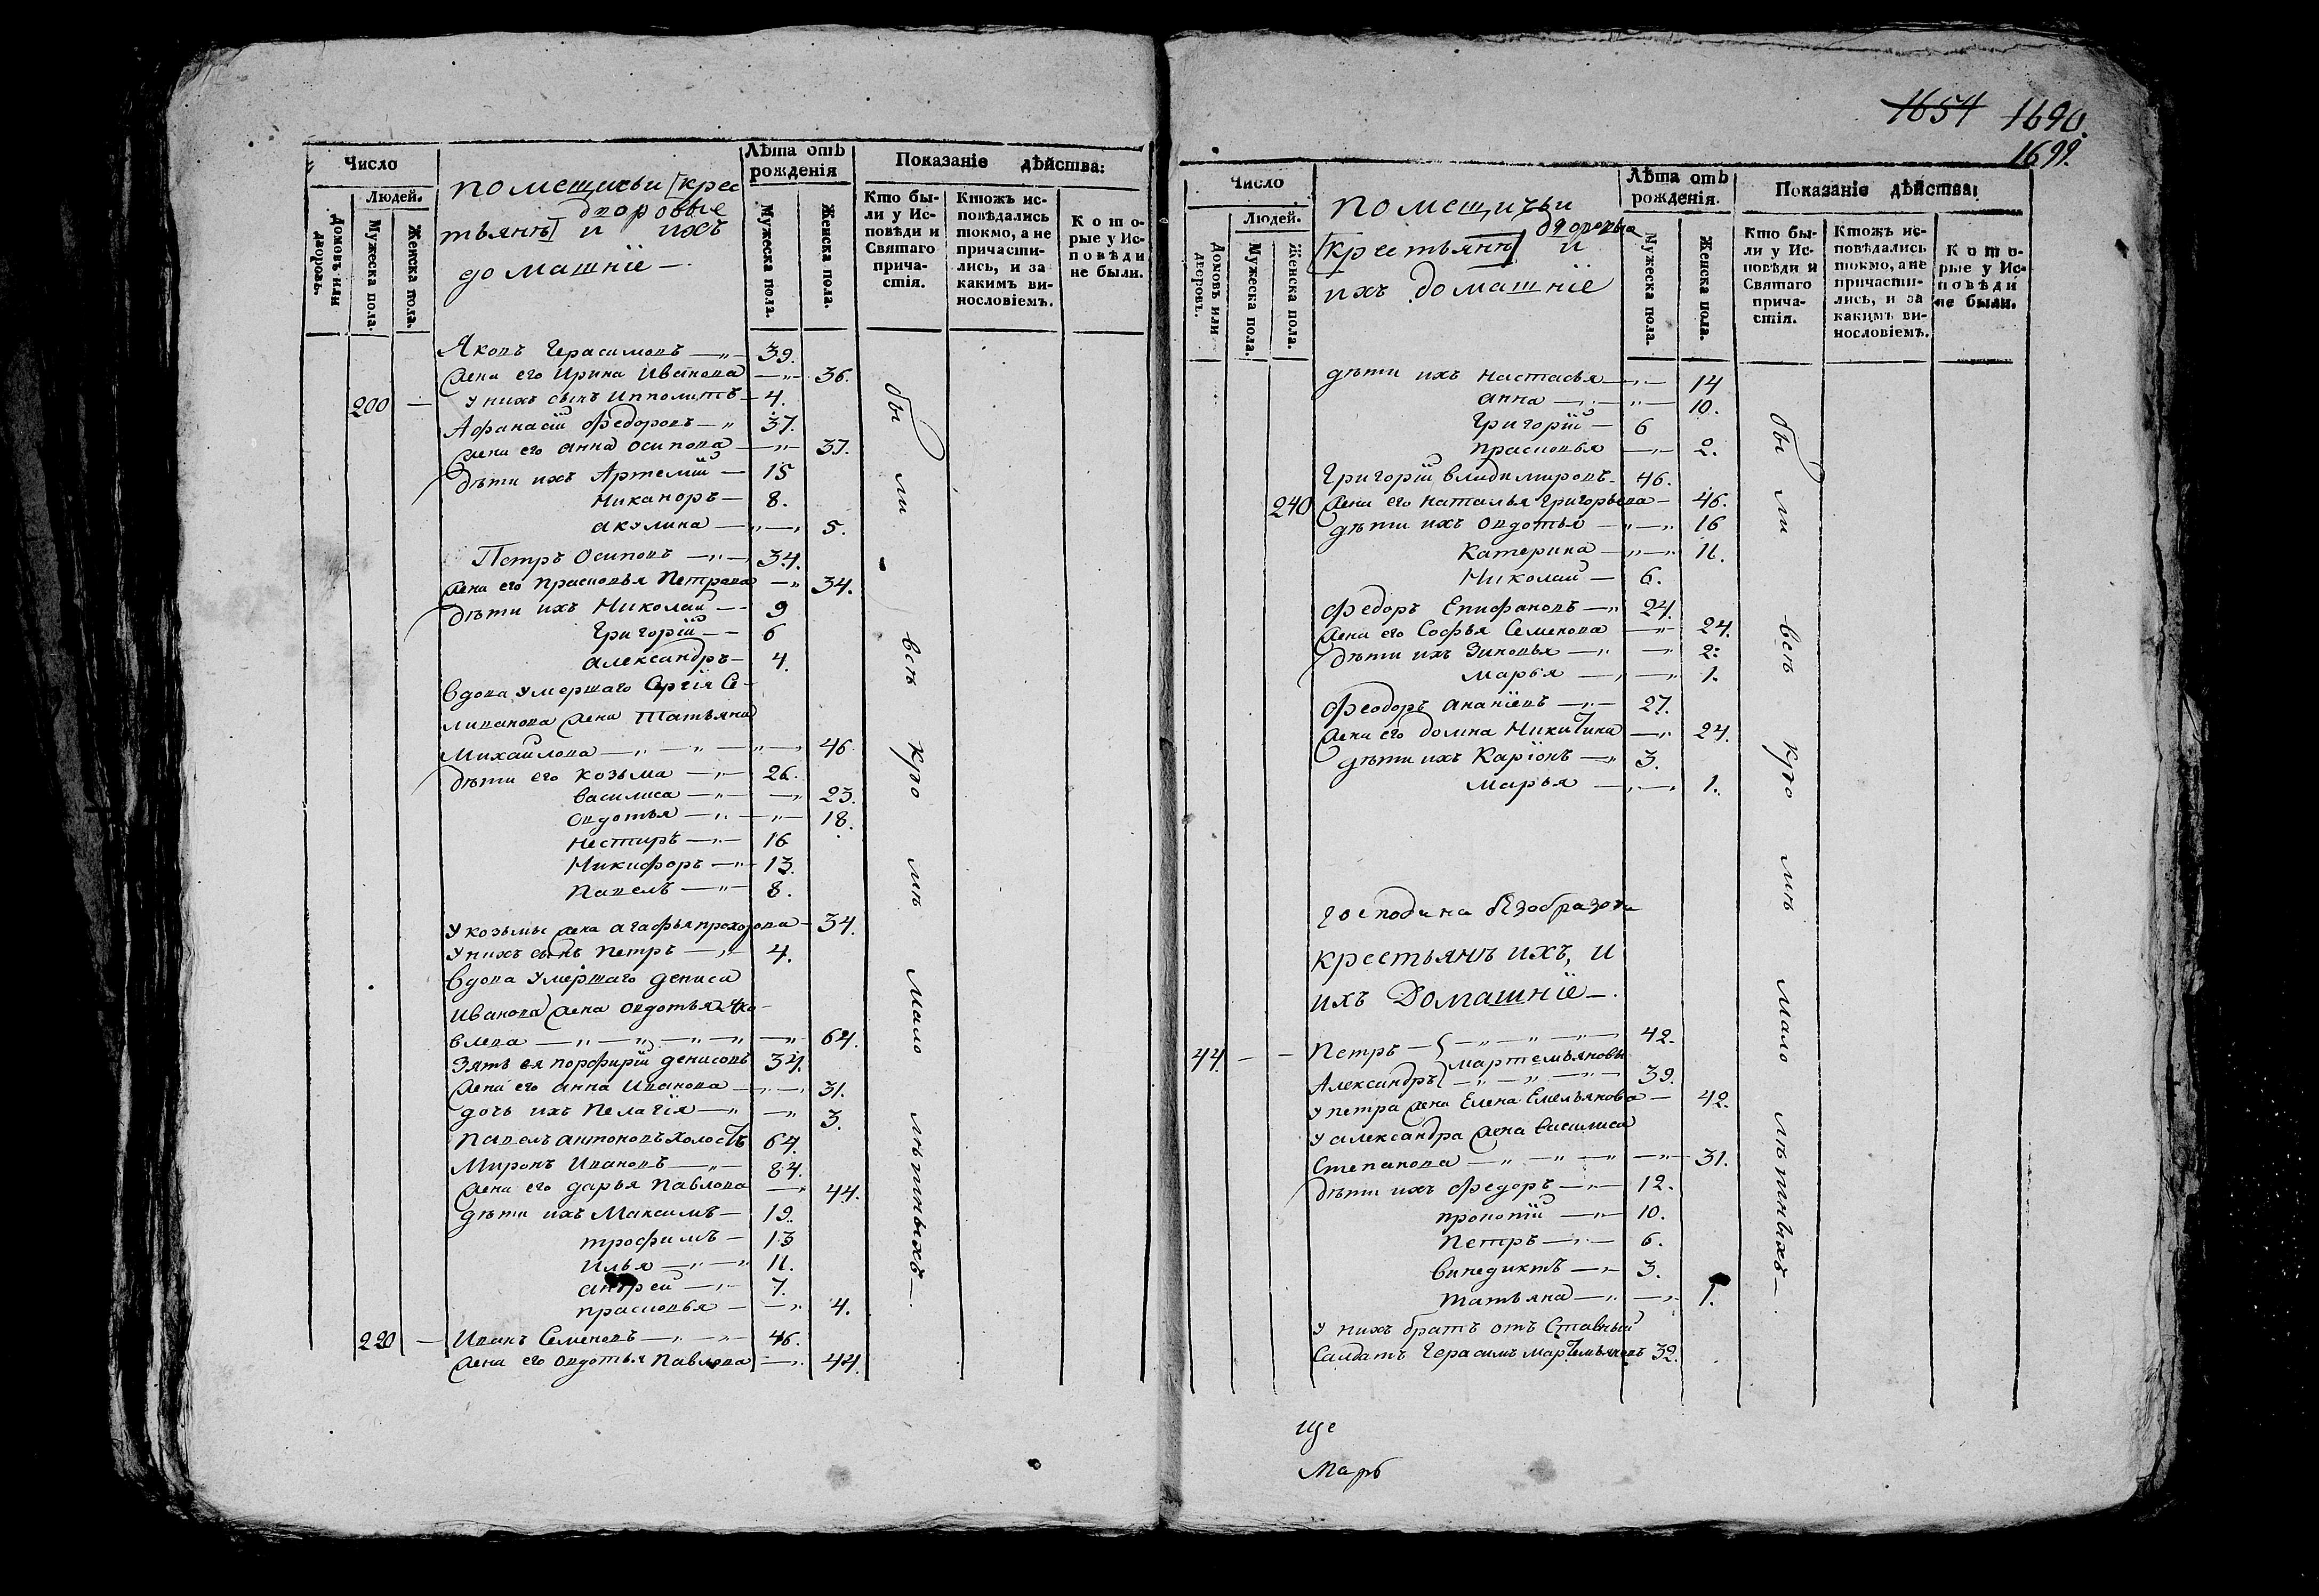 Число
Людей.
Домовъ или дворовъ.
Мужеска пола.
Женска пола.
помещичьи [крес
дворовые
тьянѣ] и ихъ
домашнїе —
Лѣта отъ рожденія
Мужеска пола.
Женска пола.
Показаніе дѣйства:
Кто были у Исповѣди и Святаго причастія.
Ктожъ исповѣдались токмо, а не причастились, и за какимъ винословіемъ.
Которые у Исповѣди не были.
Яковъ Герасимовъ — 39.
жена его Ирина Иванова — 36.
200 — у нихъ сынъ Ипполитъ — 4.
Афанасїй Федоровъ — 37.
жена его анна осипова — 37.
дѣти ихъ Артемїй — 15
Никаноръ — 8.
акулина — 5.
Петръ Осиповъ — 34.
жена его прасковья Петрова — 34.
дѣти ихъ Николай — 9
Григорїй — 6
александръ — 4.
вдова умершаго Сергїя Се-
ливанова жена Татьяна
Михайлова — 46
дѣти его козьма — 26.
василиса — 23.
овдотья — 18.
нестиръ — 16
Никифоръ — 13.
павелъ — 8.
у козьмы жена агафья прохорова — 34.
у нихъ сынъ Петръ — 4.
вдова умершаго дениса
Иванова жена овдотья Яко-
влева — 64.
Зять ея порфирїй денисовъ 34.
жена его анна Иванова — 31.
дочь ихъ Пелагїя — 3.
павелъ антоновъ холостъ 64.
Миронъ Ивановъ — 84.
жена его дарья Павлова — 44.
дѣти ихъ Максимъ — 19.
трофимъ — 13
Илья — 11.
андрей — 7.
прасковья — 4.
220 — Иванъ Семеновъ — 46.
жена его овдотья Павлова — 44.
были всѣ кромѣ малолѣтныхъ —
1654 1690.
1699.
Число
Людей.
Домовъ или дворовъ.
Мужеска пола.
Женска пола.
помещичьи
дворовыя
[крестьянѣ] и
ихъ домашнїе
Лѣта отъ рожденія.
Мужеска пола.
Женска пола.
Показаніе дѣйства:
Кто были у Исповѣди и Святаго причастія.
Ктожъ исповѣдались токмо, а не причастились, и за какимъ винословіемъ.
Которые у Исповѣди не были.
дѣти ихъ настасья — 14
анна — 10.
Григорїй — 6
прасковья — 2.
Григорїй владимировъ — 46.
240 жена его наталья Григорьева — 46.
дѣти ихъ овдотья — 16
Катерина — 11.
Николай — 6.
Федоръ Епифановъ — 24.
жена его Софья Семенова — 24.
дѣти ихъ Зиновья — 2.
марья — 1.
Феодоръ ананїевъ — 27.
жена его домна Никитина — 24.
дѣти ихъ Карїонъ — 3.
марья — 1.
господина безобразова
крестьянѣ ихъ, и
ихъ Домашнїе —.
44. — — Петръ — 42.
Мартемьяновы
Александръ — 39.
у петра жена Елена Емельянова — 42.
у александра жена василиса
Степанова — 31.
дѣти ихъ Федоръ — 12.
прокопїй — 10.
Петръ — 6.
винедиктъ — 3.
татьяна — 1.
у нихъ братъ отъ Ставный
Салдатъ Герасимъ мартемьяновъ 32.
были всѣ кромѣ малолѣтныхъ —.
ще
Марь